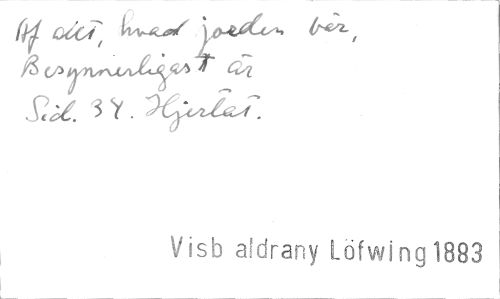 Af det, hvad jorden bär,
Besynnerligast är
Sid. 34. Hjertat.
Visb aldrany Löfwing 1883